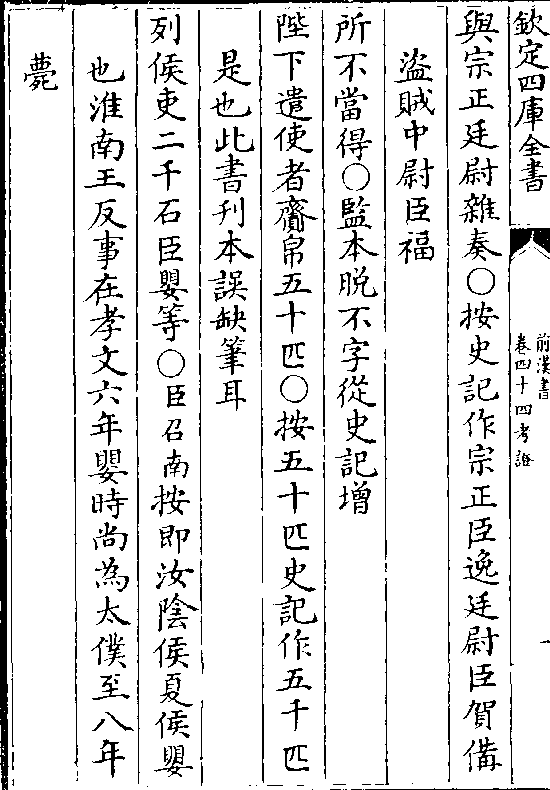 欽定四庫全書
前漢書
卷四十四考證
一
與宗正廷尉雜奏○按史記作宗正臣逸廷尉臣賀備
盜賊中尉臣福
所不當得○監本脫不字從史記增
陛下遣使者齎帛五十匹○按五十匹史記作五千匹
是也此書刋本誤缺筆耳
列侯吏二千石臣嬰等○臣召南按即汝陰侯夏侯嬰
也淮南王反事在孝文六年嬰時尚為太僕至八年
薨